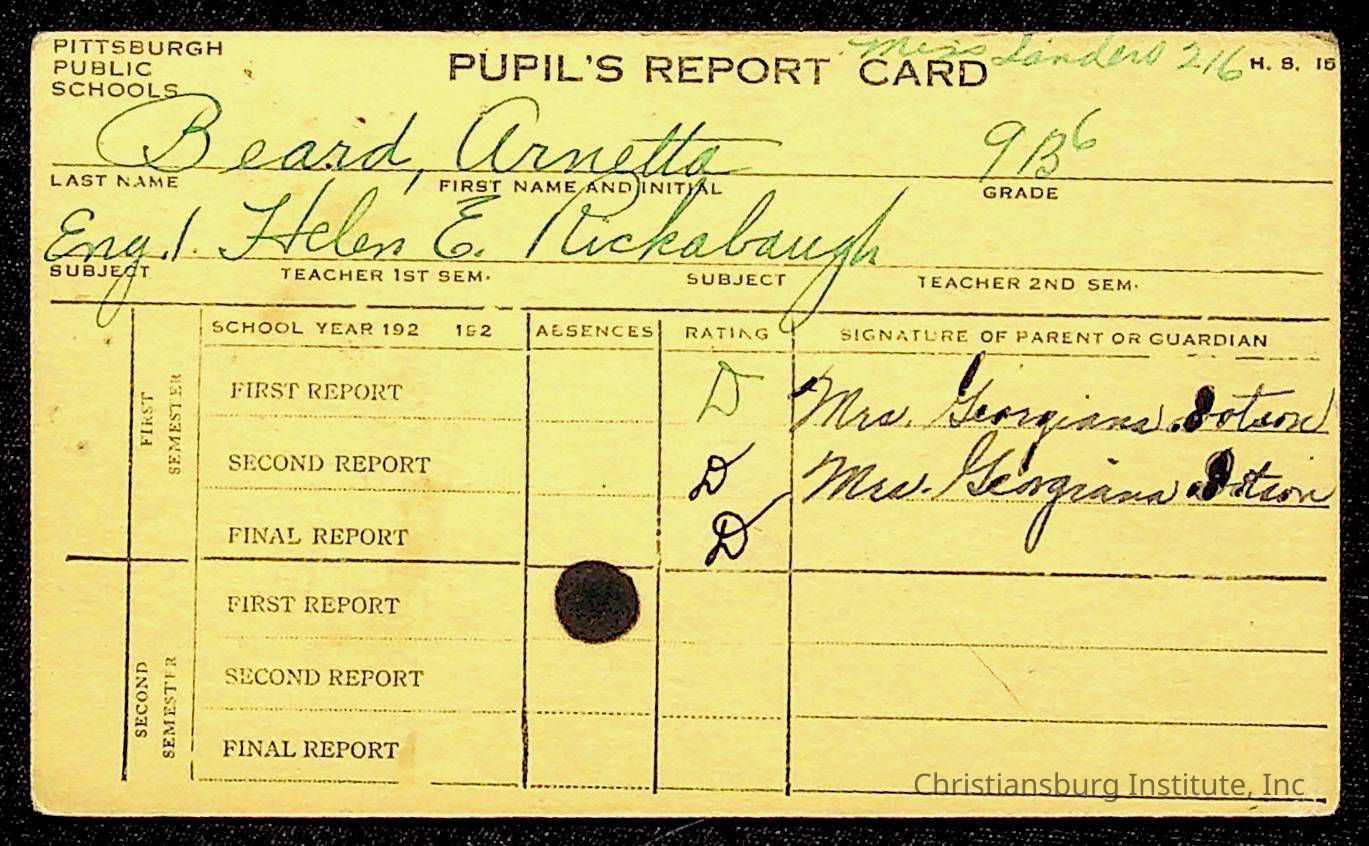 PITTSBURGH
PUBLIC
SCHOOLS
PUPIL'S REPORT CARD
Miss Sanders 216
H. S. 15
Beard, Arnetta 9B6
LAST NAME FIRST NAME AND INITIAL GRADE
Eng. 1. Helen E. Rickabaugh
SUBJECT TEACHER 1ST SEM. SUBJECT TEACHER 2ND SEM.
SCHOOL YEAR 192 192 ABSENCES RATING SIGNATURE OF PARENT OR GUARDIAN
FIRST SEMESTER
FIRST REPORT D Mrs. Georgiana Dotson
SECOND REPORT D Mrs. Georgiana Dotson
FINAL REPORT D
SECOND SEMESTER
FIRST REPORT
SECOND REPORT
FINAL REPORT
Christiansburg Institute, Inc